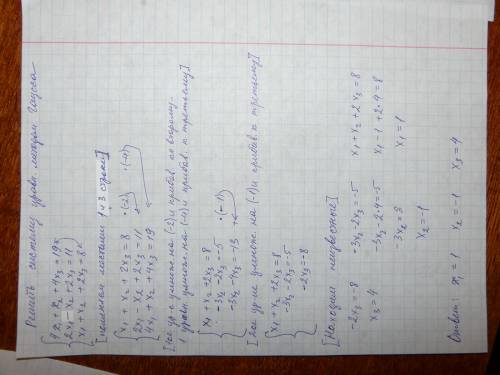 Решить систему уравн. методом Гаусса
4x₁ + x₂ + 4x₃ = 19
2x₁ - x₂ + 2x₃ = 11
x₁ + x₂ + 2x₃ = 8
[поменяем местами 1 и 3 строки]
x₁ + x₂ + 2x₃ = 8 ·(-2) ·(-4)
2x₁ - x₂ + 2x₃ = 11
4x₁ + x₂ + 4x₃ = 19
умножь. на (-2) и прибав. ко второму.
1 уравн. умнож. на (-4) и прибав. к третьему]
x₁ + x₂ + 2x₃ = 8
-3x₂ - 2x₃ = -5 ·(-1)
-3x₂ - 4x₃ = -13
умнож. на (-1) и прибав. к третьему]
x₁ + x₂ + 2x₃ = 8
-3x₂ - 2x₃ = -5
-2x₃ = -8
[Находим неизвестные]
-2x₃ = -8 -3x₂ - 2x₃ = -5 x₁ + x₂ + 2x₃ = 8
x₃ = 4 -3x₂ - 2·4 = -5 x₁ - 1 + 2·4 = 8
-3x₂ = 3 x₁ = 1
x₂ = -1
Ответ: x₁ = 1 x₂ = -1 x₃ = 4